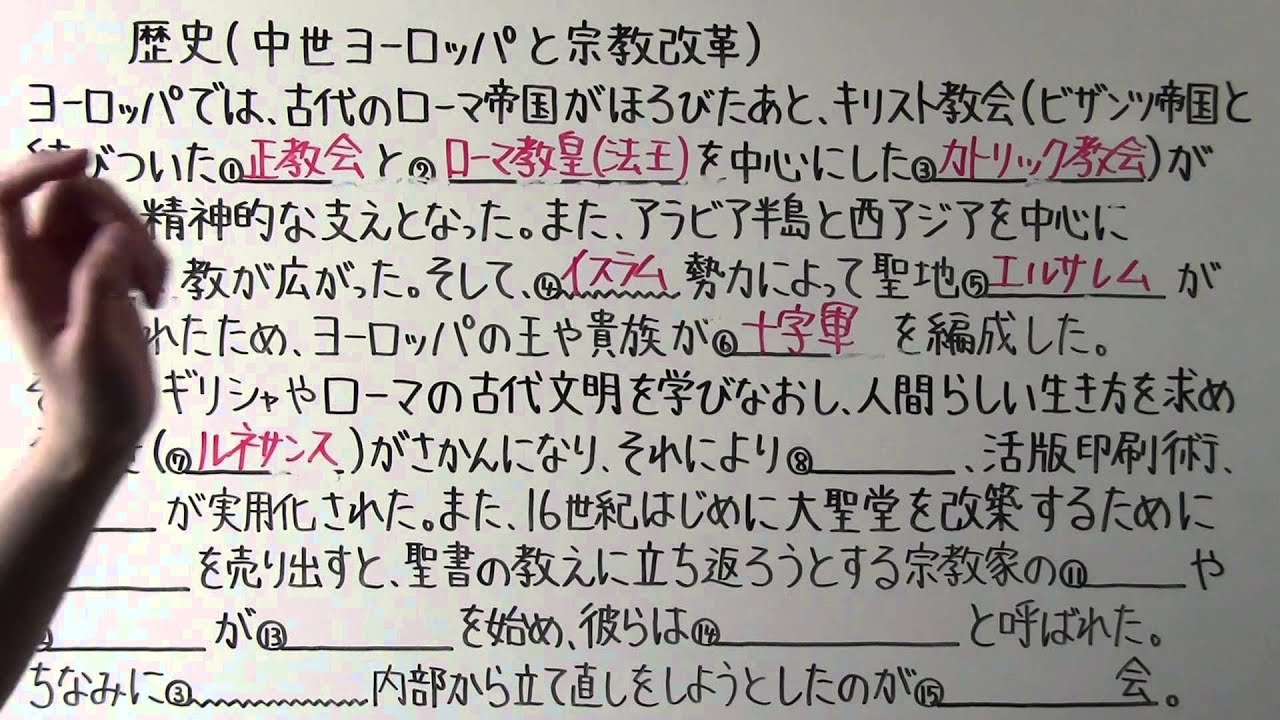 歴史(中世ヨーロッパと宗教改革)
ヨーロッパでは、古代のローマ帝国がほろびたあと、キリスト教会(ビザンツ帝国と
びついた①正教会と②ローマ教皇(法王)を中心にした③カトリック教会)が
精神的な支えとなった。また、アラビア半島と西アジアを中心に
教が広がった。そして、④イスラム勢力によって聖地⑤エルサレムが
れたため、ヨーロッパの王や貴族が⑥十字軍を編成した。
ギリシャやローマの古代文明を学びなおし、人間らしい生き方を求め
(⑦ルネサンス)がさかんになり、それにより⑧______、活版印刷術、
____が実用化された。また、16世紀はじめに大聖堂を改築するために
______を売り出すと、聖書の教えに立ち返ろうとする宗教家の⑪____や
______が⑬______を始め、彼らは⑭________と呼ばれた。
ちなみに③______内部から立て直しをしようとしたのが⑮______会。